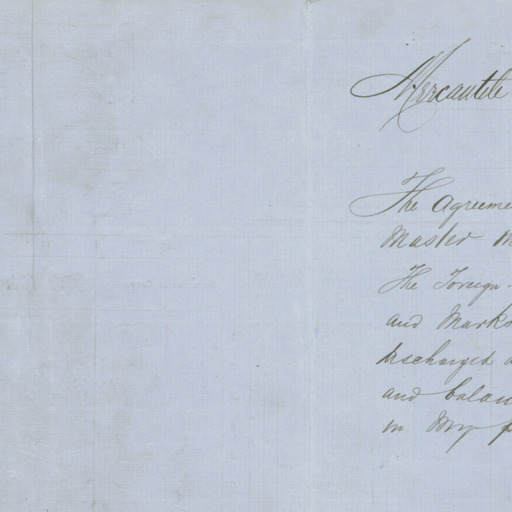 Mercantile
The Agreeme
Master M
The Foreign
and Marks
discharged a
and balan
in My p